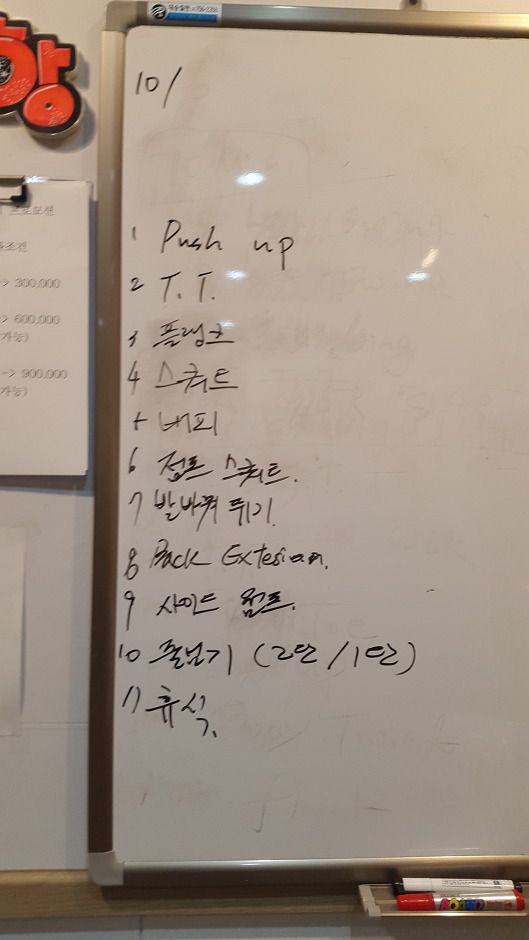 항
10/
1 Push up
2 T. T.
3 플랭크
4 스쿼트
5 버피
6 점프 스쿼트.
7 발바꿔 뛰기.
8 Back Extesion.
9 사이드 점프.
10 줄넘기 (2단 / 1단)
11 휴식.
프로모션
조건
-> 300,000
-> 600,000
가능)
-> 900,000
가능)